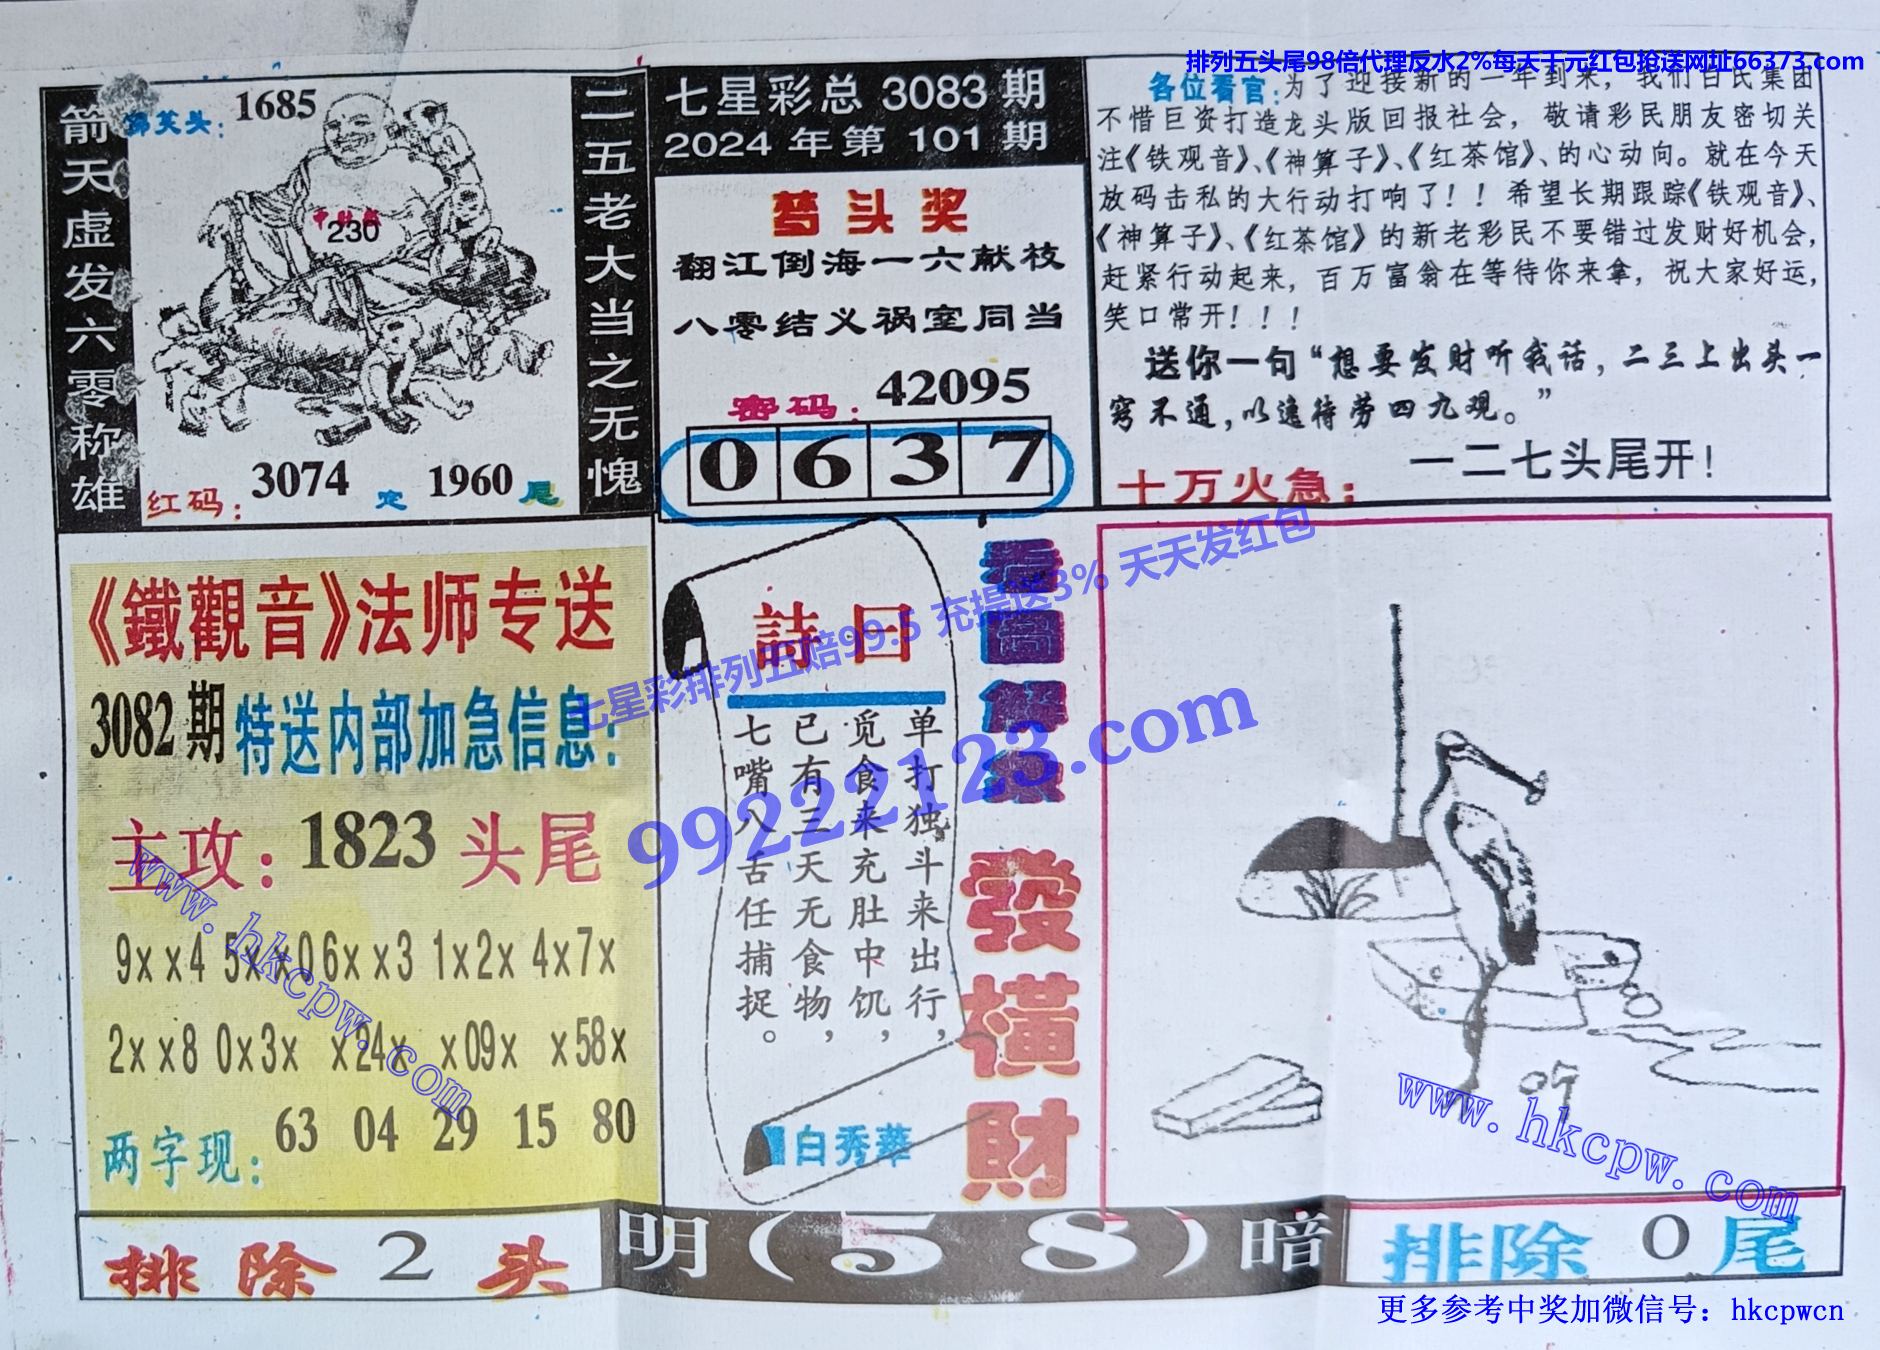 排列五头尾98倍代理反水2%每天千元红包抢送网址66373.com
箭天虚发六零称雄
弥笑头:1685
230
红码:3074 定 1960 尾
二五老大当之无愧
七星彩总 3083 期
2024 年第 101 期
梦头奖
翻江倒海一六献枝
八零结义祸室同当
密码:42095
0637
各位看官:为了迎接新的一年到来,我们白民集团
不惜巨资打造龙头版回报社会,敬请彩民朋友密切关
注《铁观音》、《神算子》、《红茶馆》、的心动向。就在今天
放码击私的大行动打响了!！希望长期跟踪《铁观音》、
《神算子》、《红茶馆》的新老彩民不要错过发财好机会,
赶紧行动起来,百万富翁在等待你来拿,祝大家好运,
笑口常开!！！
送你一句“想要发财听我话,二三上出头一
窍不通,以逸待劳四九观。”
十万火急: 一二七头尾开!
《鐵觀音》法师专送
3082期 特送内部加急信息:
主攻:1823 头尾
9xx4 5xx0 6xx3 1x2x 4x7x
2xx8 0x3x x24x x09x x58x
两字现: 63 04 29 15 80
詩曰
单打独斗来出行,
觅食来充肚中饥,
已有三天无食物,
七嘴八舌任捕捉。
白秀華
發橫財
七星彩排列五赔99.5 充提送3% 天天发红包
99222123.com
www.hkcpw.com
www.hkcpw.com
排除 2 头
明(58)暗
排除 0 尾
更多参考中奖加微信号：hkcpwcn